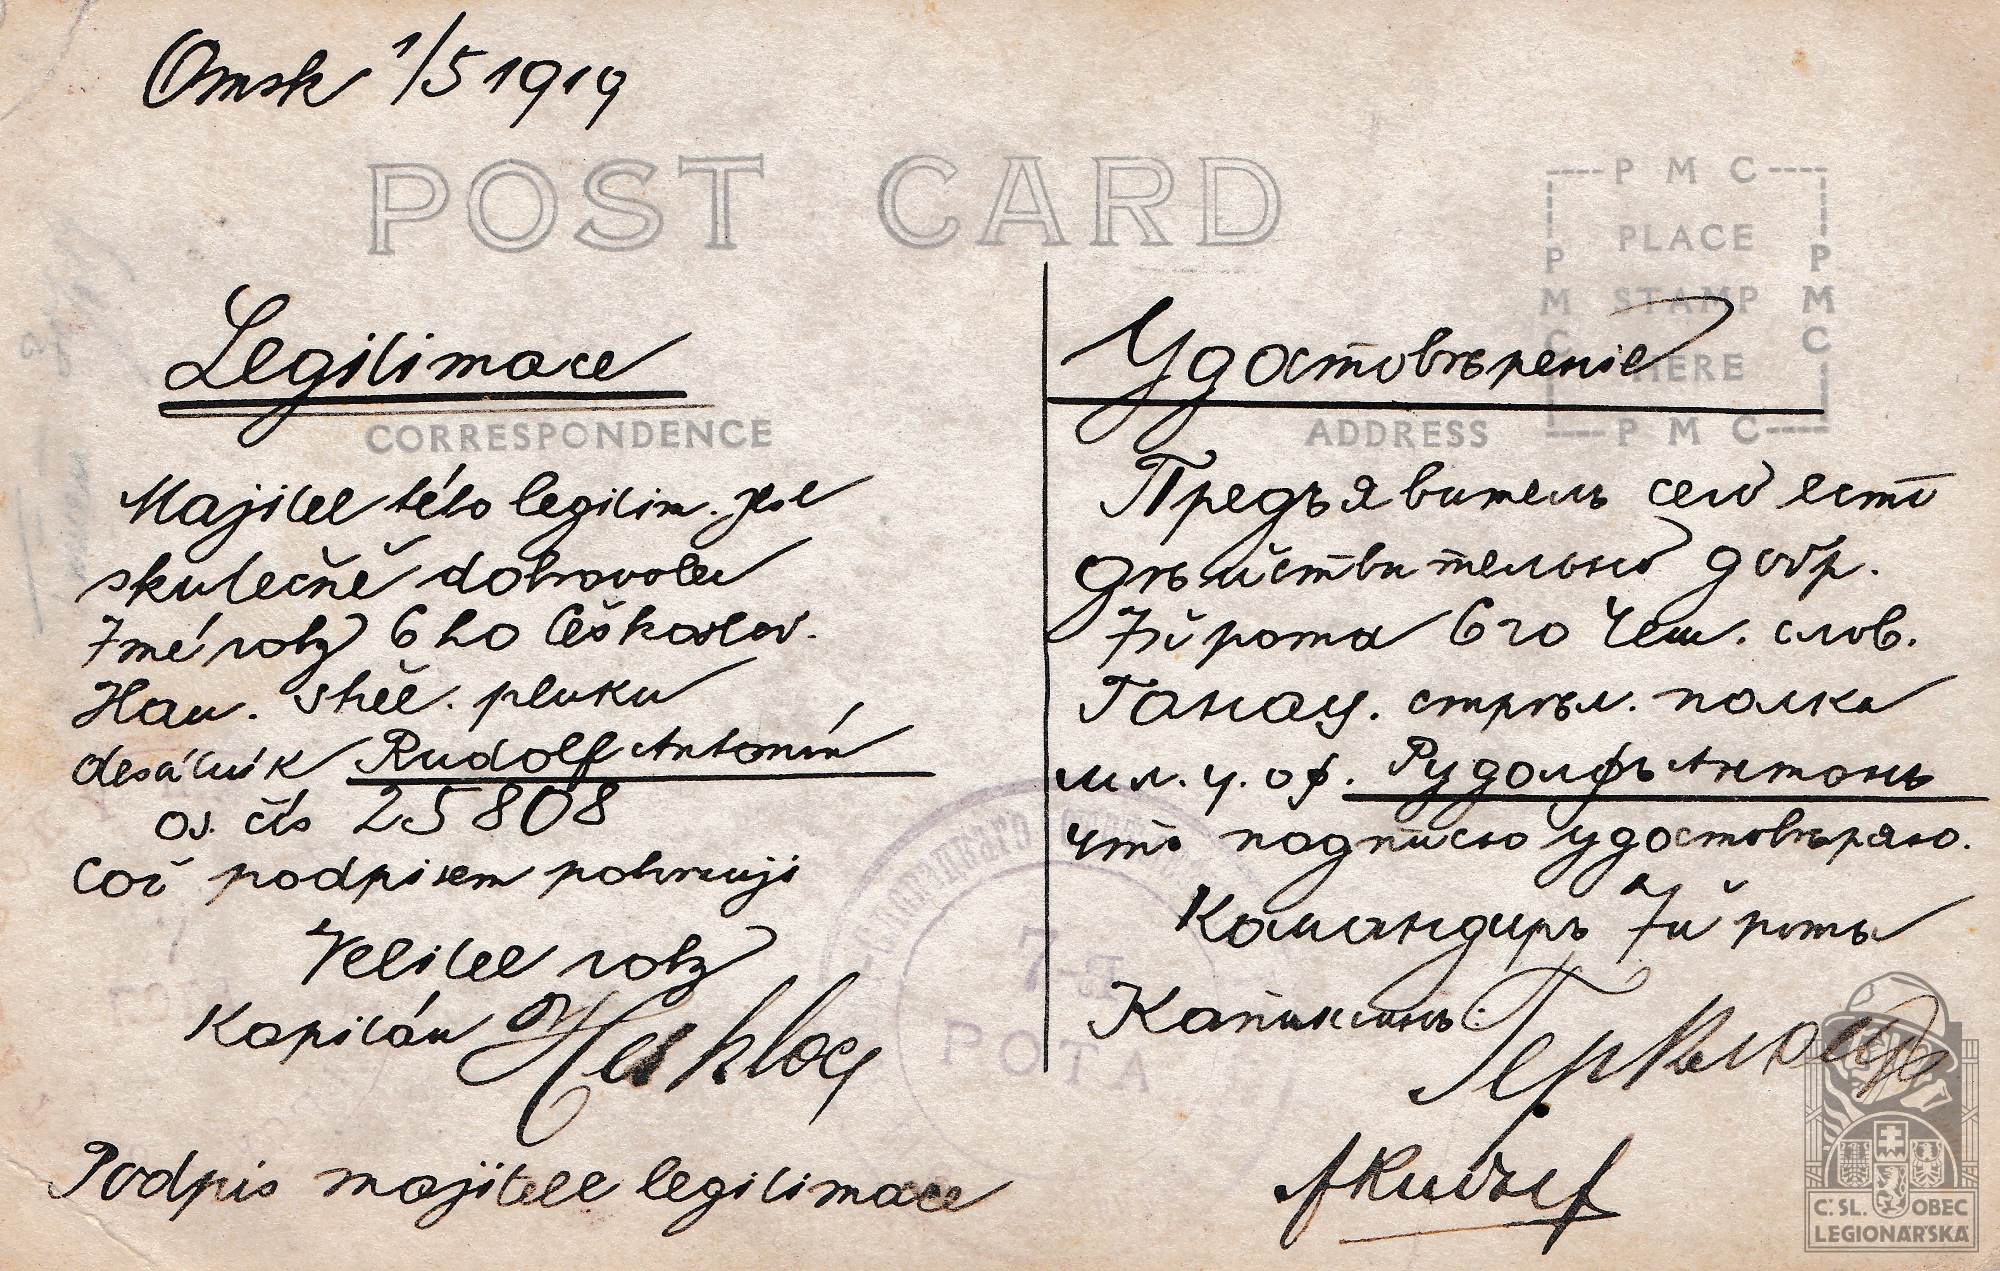 Omsk 1/5 1919
POST CARD
PMC
PLACE
STAMP
HERE
PMC
PMC
PMC
Legitimace
CORRESPONDENCE
Majitel této legitim. jest
skutečně dobrovolec
7mé roty 6ho Českoslov.
Han. střel. pluku
desátník Rudolf Antonín
os. čís 25808
což podpisem potvrzuji
Velitel roty
Kapitán
Podpis majitele legitimace
Удостовѣреніе
ADDRESS
Предъявитель сего есть
дѣйствительно добр.
7й рота 6го Чеш. слов.
Ганац. стрѣл. полка
мл. у. оф. Рудолфъ Антонъ
что подписью удостовѣряю.
Командиръ 7й роты
Капитанъ:
ARudolf
7-я
РОТА
Č. SL. OBEC
LEGIONÁŘSKÁ